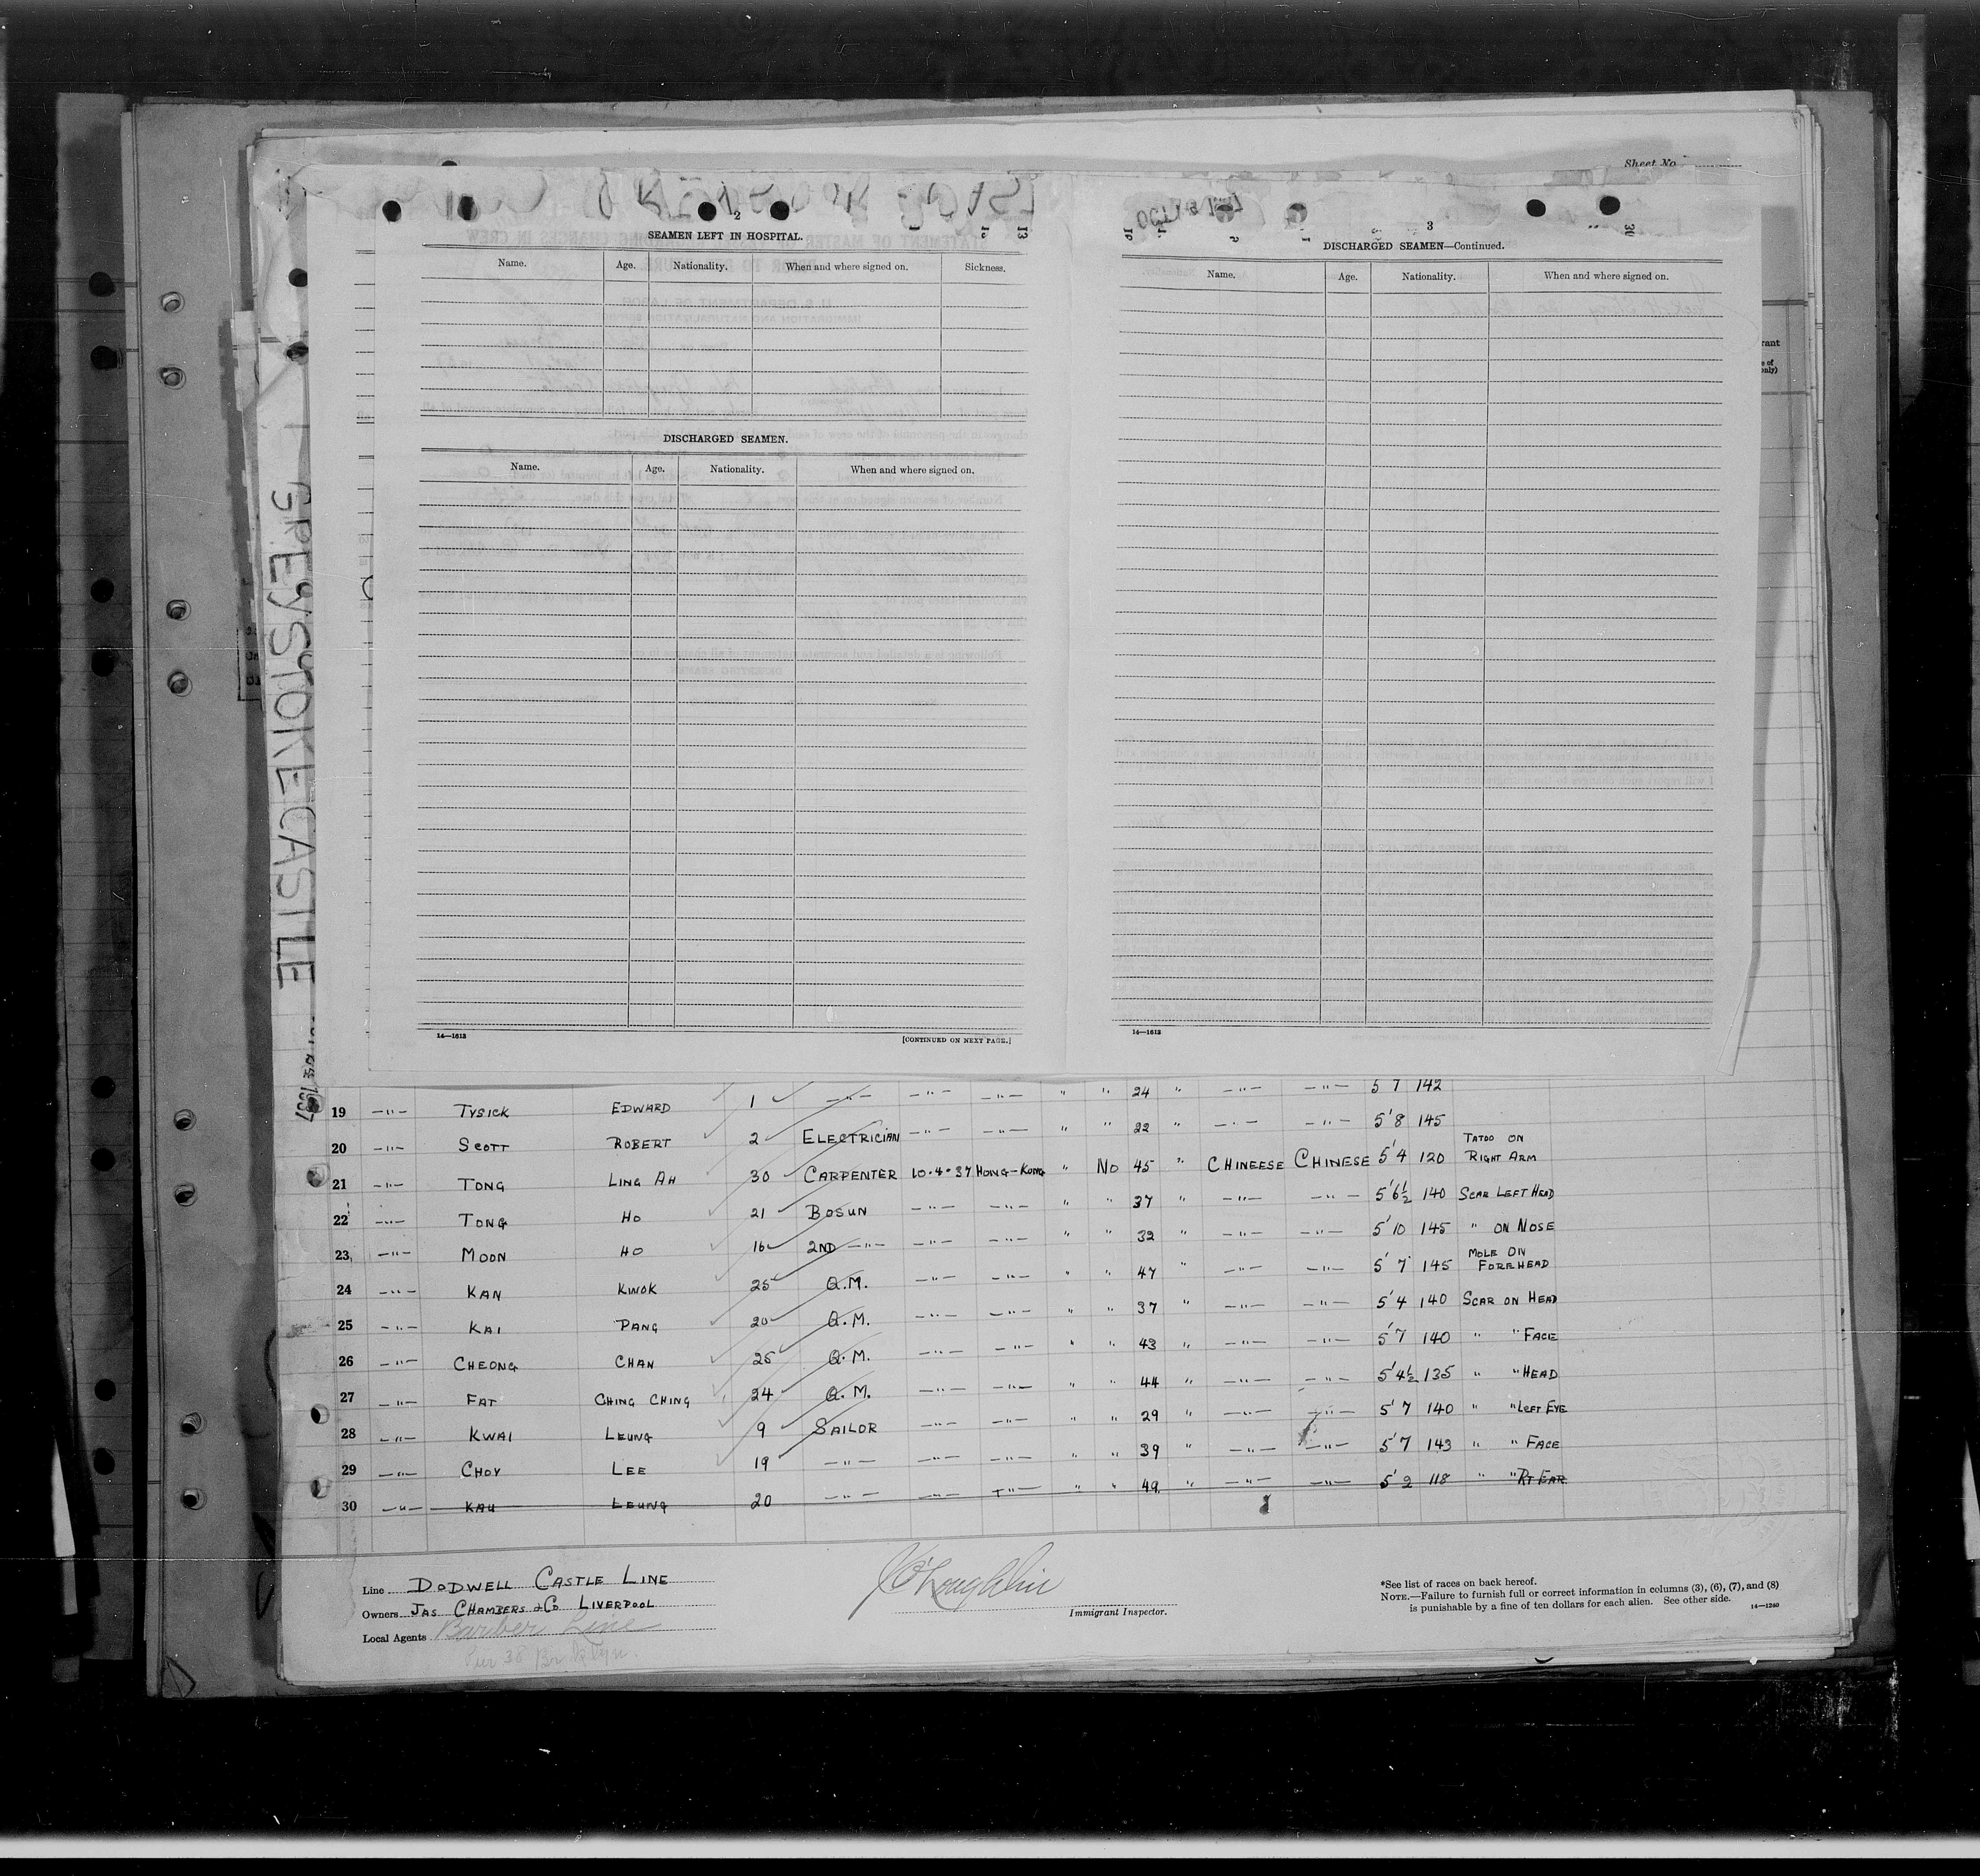 Sheet No.
GREYSTOKE CASTLE
2
SEAMEN LEFT IN HOSPITAL.
Name. Age. Nationality. When and where signed on. Sickness.
DISCHARGED SEAMEN.
Name. Age. Nationality. When and where signed on.
14—1613
[CONTINUED ON NEXT PAGE.]
3
DISCHARGED SEAMEN—Continued.
Name. Age. Nationality. When and where signed on.
14—1613
19 —"— TYSICK EDWARD 1 —"— —"— —"— " " 24 " —"— —"— 5 7 142
20 —"— SCOTT ROBERT 2 ELECTRICIAN —"— —"— " " 22 " —"— —"— 5'8 145
21 —"— TONG LING AH 30 CARPENTER 10·4·37 HONG-KONG " NO 45 " CHINEESE CHINESE 5'4 120 TATOO ON RIGHT ARM
22 —"— TONG HO 21 BOSUN —"— —"— " " 37 " —"— —"— 5'6½ 140 SCAR LEFT HEAD
23 —"— MOON HO 16 2ND —"— —"— —"— " " 32 " —"— —"— 5'10 145 " ON NOSE
24 —"— KAN KWOK 25 Q.M. —"— —"— " " 47 " —"— —"— 5'7 145 MOLE ON FOREHEAD
25 —"— KAI PANG 20 Q.M. —"— —"— " " 37 " —"— —"— 5'4 140 SCAR ON HEAD
26 —"— CHEONG CHAN 25 Q.M. —"— —"— " " 43 " —"— —"— 5'7 140 " " FACE
27 —"— FAT CHING CHING 24 Q.M. —"— —"— " " 44 " —"— —"— 5'4½ 135 " " HEAD
28 —"— KWAI LEUNG 9 SAILOR —"— —"— " " 29 " —"— —"— 5'7 140 " " LEFT EYE
29 —"— CHOY LEE 19 —"— —"— —"— " " 39 " —"— —"— 5'7 143 " " FACE
30 —"— KAU LEUNG 20 —"— —"— —"— " " 49 " —"— —"— 5'2 118 " " RT EAR
Line DODWELL CASTLE LINE
Owners JAS CHAMBERS & CO LIVERPOOL
Local Agents Barber Line
Pier 36 Brooklyn.
Immigrant Inspector.
*See list of races on back hereof.
NOTE.—Failure to furnish full or correct information in columns (3), (6), (7), and (8)
is punishable by a fine of ten dollars for each alien. See other side.
14—1240